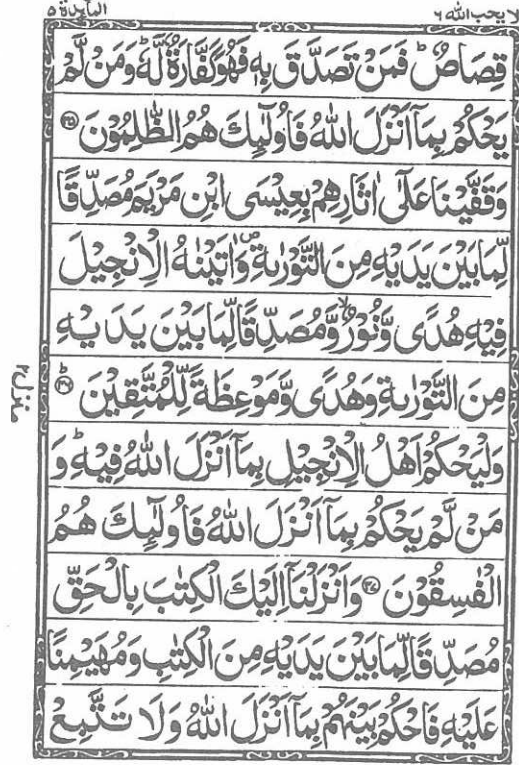 لا يحب الله ٦
المآيدة ٥
قِصَاصٌ ؕ فَمَنْ تَصَدَّقَ بِهٖ فَهُوَ كَفَّارَةٌ لَّهٗ ؕ وَمَنْ لَّمْ
يَحْكُمْ بِمَاۤ اَنْزَلَ اللّٰهُ فَاُولٰٓئِكَ هُمُ الظّٰلِمُوْنَ ۝۴۵
وَقَفَّيْنَا عَلٰۤى اٰثَارِهِمْ بِعِيْسَى ابْنِ مَرْيَمَ مُصَدِّقًا
لِّمَا بَيْنَ يَدَيْهِ مِنَ التَّوْرٰىةِ ۪ وَاٰتَيْنٰهُ الْاِنْجِيْلَ
فِيْهِ هُدًى وَّنُوْرٌ ۙ وَّمُصَدِّقًا لِّمَا بَيْنَ يَدَيْهِ
مِنَ التَّوْرٰىةِ وَهُدًى وَّمَوْعِظَةً لِّلْمُتَّقِيْنَ ؕ۝۴۶
وَلْيَحْكُمْ اَهْلُ الْاِنْجِيْلِ بِمَاۤ اَنْزَلَ اللّٰهُ فِيْهِ ؕ وَ
مَنْ لَّمْ يَحْكُمْ بِمَاۤ اَنْزَلَ اللّٰهُ فَاُولٰٓئِكَ هُمُ
الْفٰسِقُوْنَ ۝۴۷ وَاَنْزَلْنَاۤ اِلَيْكَ الْكِتٰبَ بِالْحَقِّ
مُصَدِّقًا لِّمَا بَيْنَ يَدَيْهِ مِنَ الْكِتٰبِ وَمُهَيْمِنًا
عَلَيْهِ فَاحْكُمْ بَيْنَهُمْ بِمَاۤ اَنْزَلَ اللّٰهُ وَلَا تَتَّبِعْ
منزل ۲